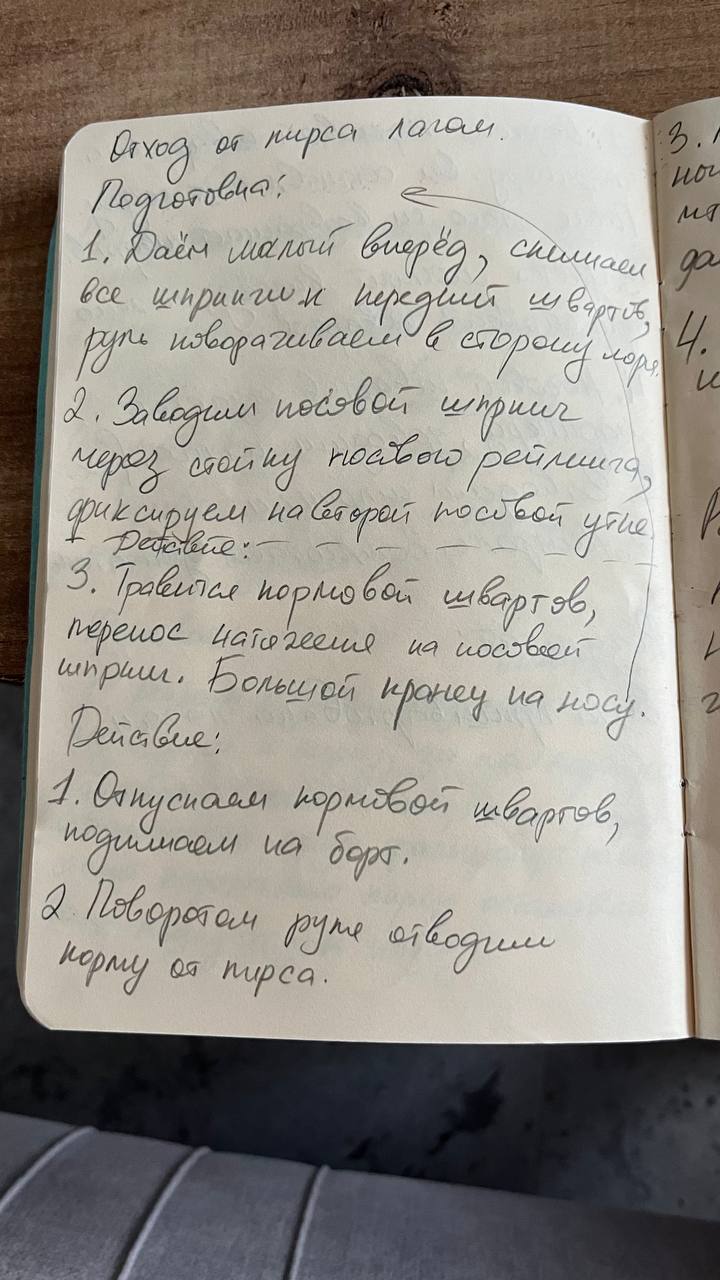 Отход от пирса лагом.
Подготовка:
1. Даём малый вперёд, снимаем
все шпринги и передний швартов,
руль поворачиваем в сторону моря.
2. Заводим носовой шпринг
через стойку носового рейлинга,
фиксируем на второй носовой утке
Действие:
3. Травится кормовой швартов,
перенос натяжения на носовой
шпринг. Большой кранец на носу.
Действие:
1. Отпускаем кормовой швартов,
поднимаем на борт.
2. Поворотом руля отводим
корму от пирса.
3.
4.